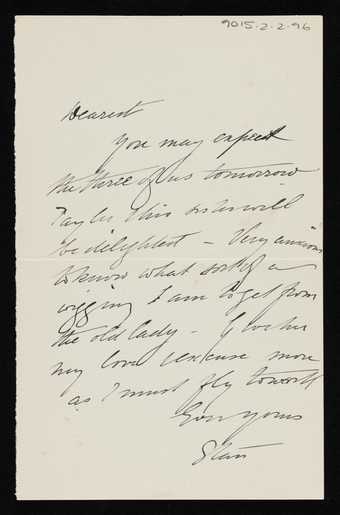 9015-2-2-96
Dearest
You may expect
the three of us tomorrow
Tayler & his sister will
be delighted – Very anxious
to know what sort of a
wigging I am to get from
the old lady – Give her
my love & excuse more
as I must fly to work
Ever yours
Stan